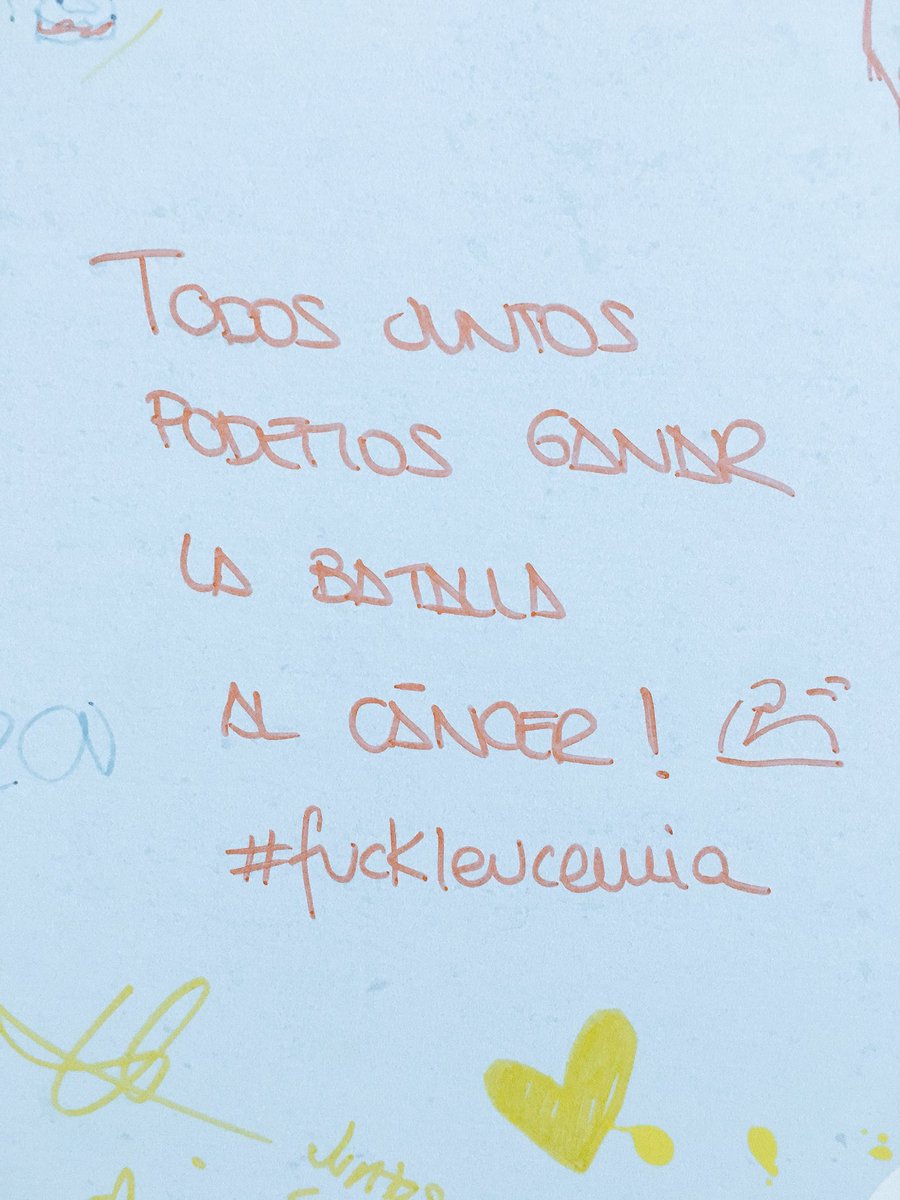 TODOS JUNTOS
PODEMOS GANAR
LA BATALLA
AL CÁNCER!
#fuckleucemia
Juntos